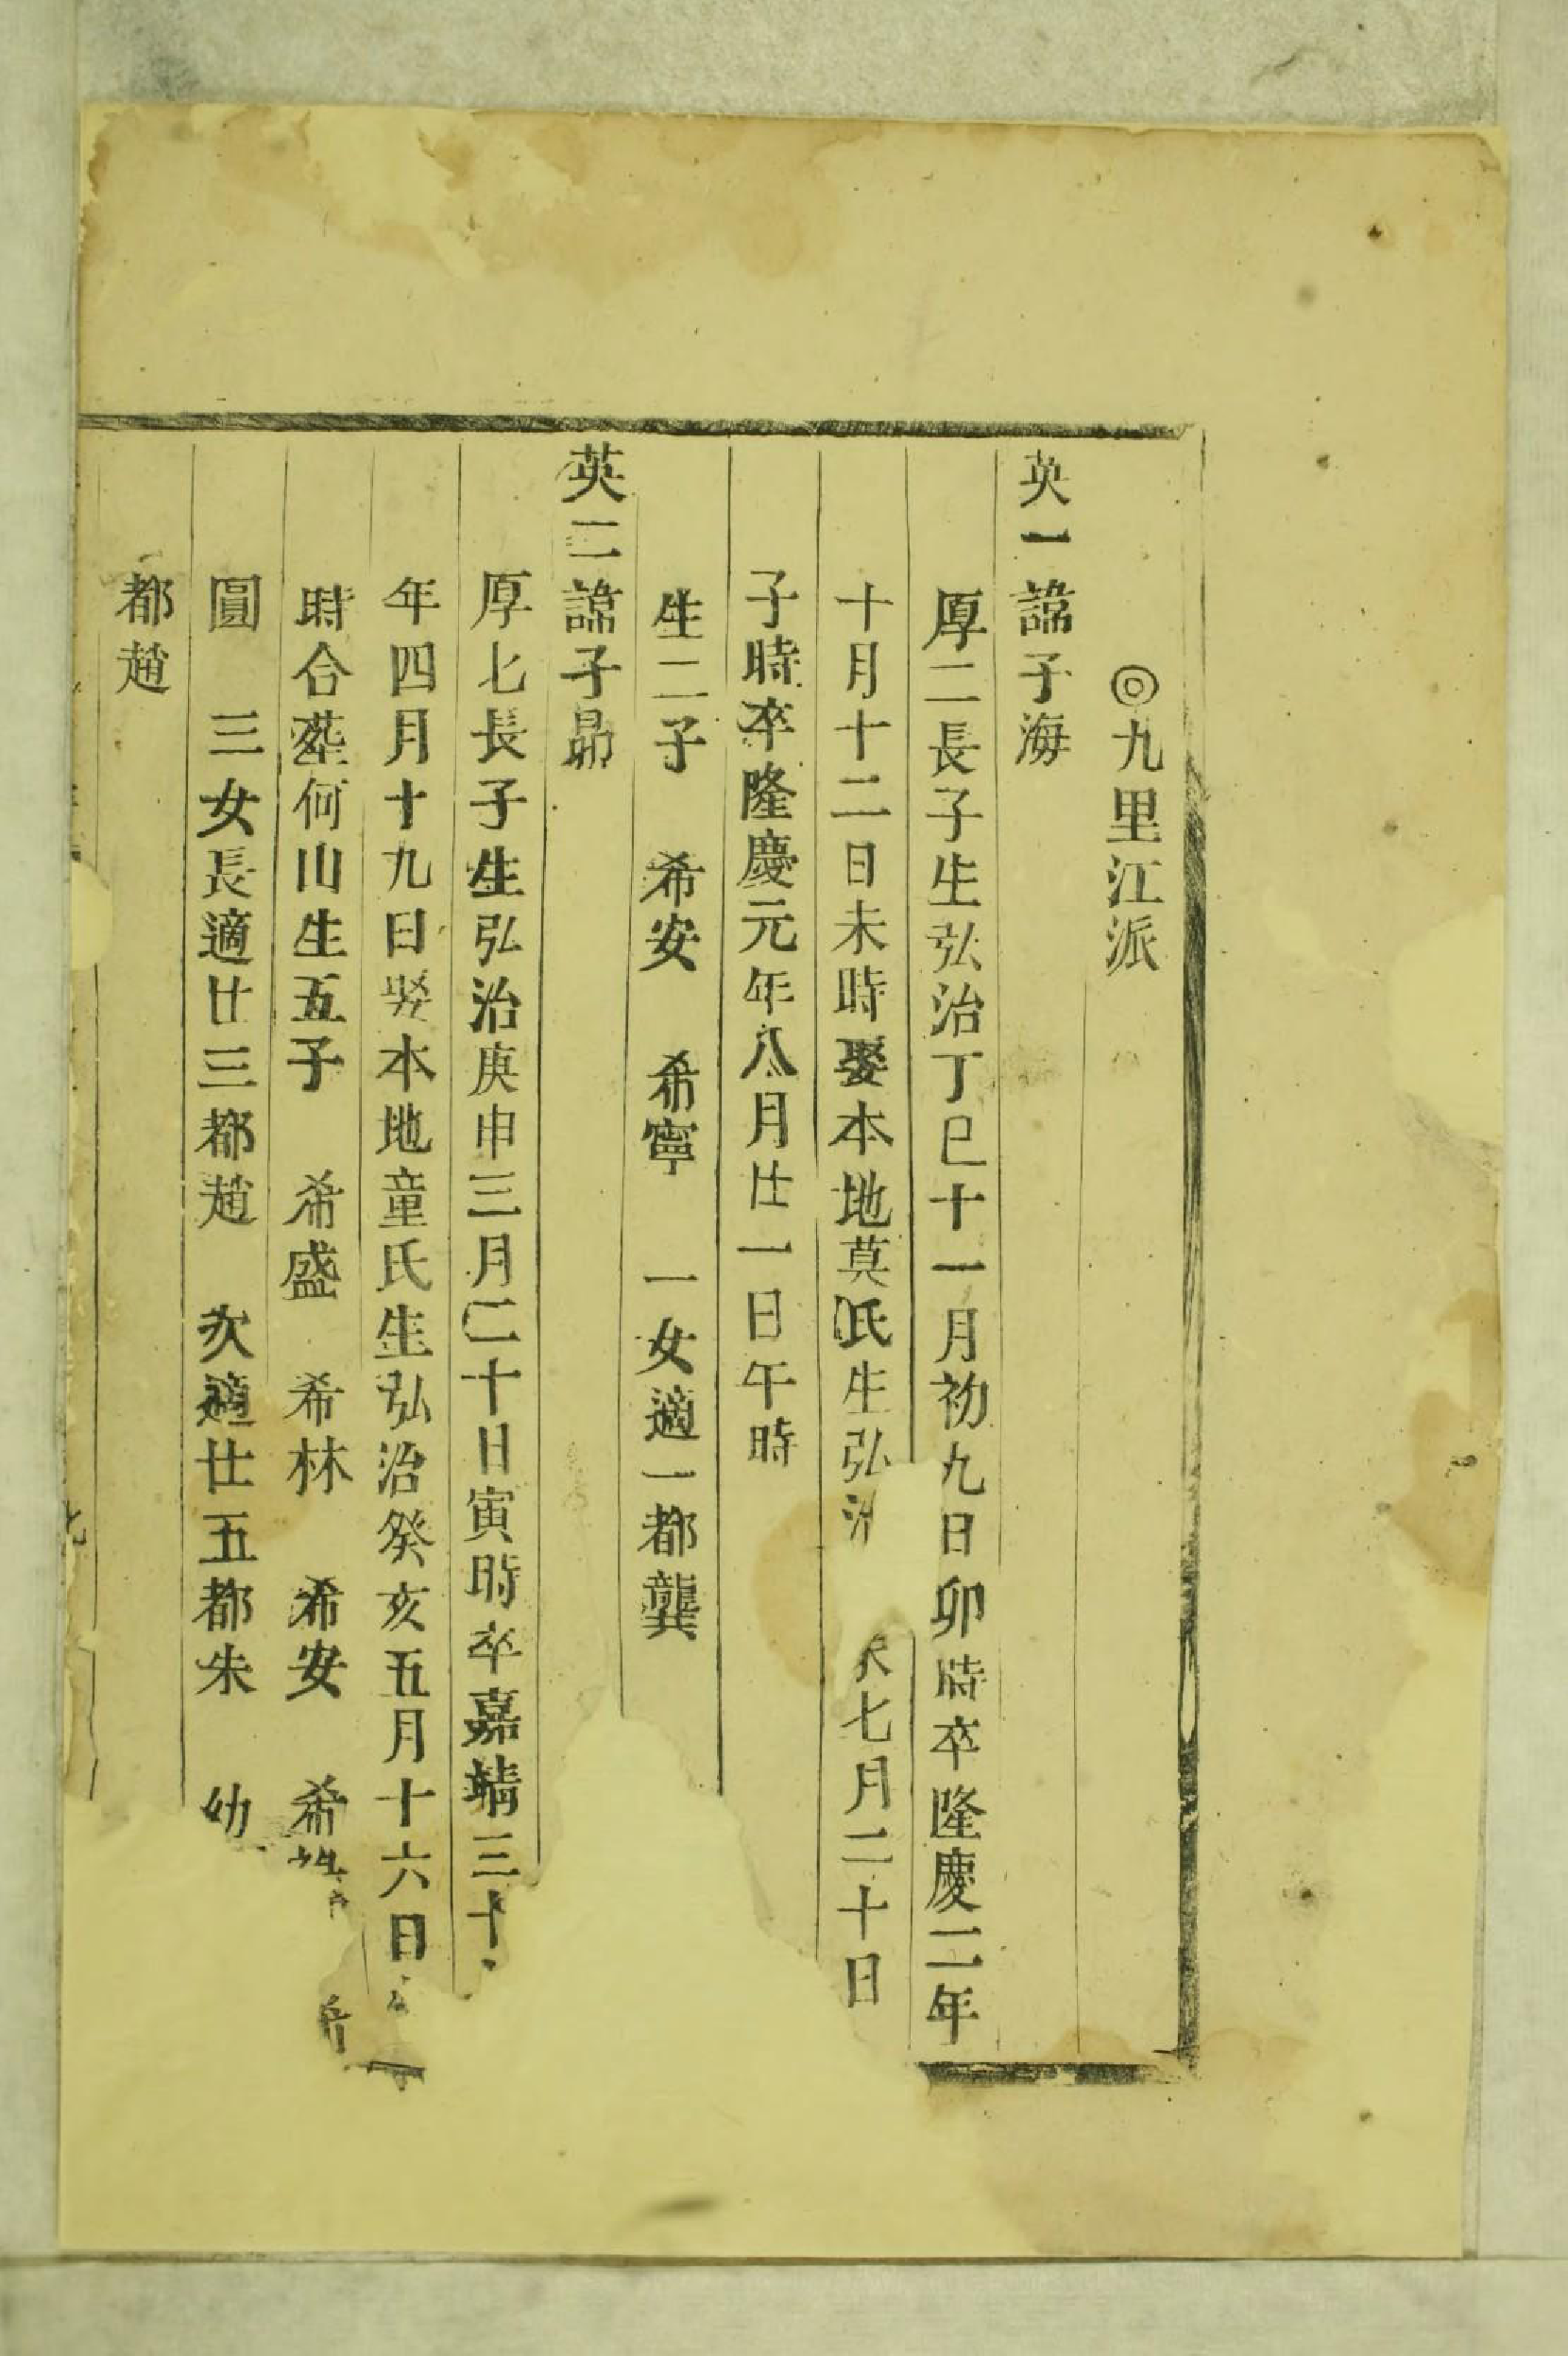 ◎九里江派
英一諱子海
厚二長子生弘治丁巳十一月初九日卯時卒隆慶二年
十月十二日未時娶本地莫氏生弘治 七月二十日
子時卒隆慶元年八月廿一日午時
生二子 希安 希寧 一女適一都龔
英二諱子昴
厚七長子生弘治庚申三月二十日寅時卒嘉靖三十
年四月十九日娶本地童氏生弘治癸亥五月十六日
時合塟何山生五子 希盛 希林 希安 希
圓 三女長適廿三都趙 次適廿五都朱 幼
都趙